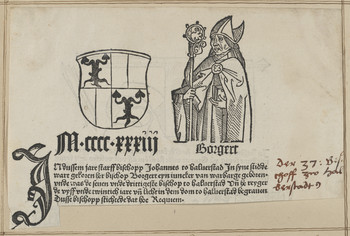 M.cccc.xxxiij
Borgert
In dussem jare starff bischopp Johannes to halverstad In syne stidde
wart gekoren her bischop Borgert eyn juncker van warberge geboren
vnde was de seuen vnde dritigeste bischop to halverstad
vnde wart in dem dom to halverstad begrauen
Dusse bischopp stichtede dat
Requiem.
Der 37: Bis-
choff zu Hal
berstadt